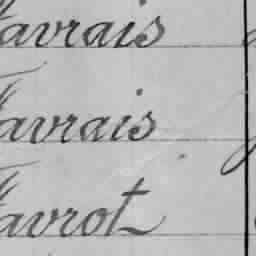 Favrais
Favrais
Favrot